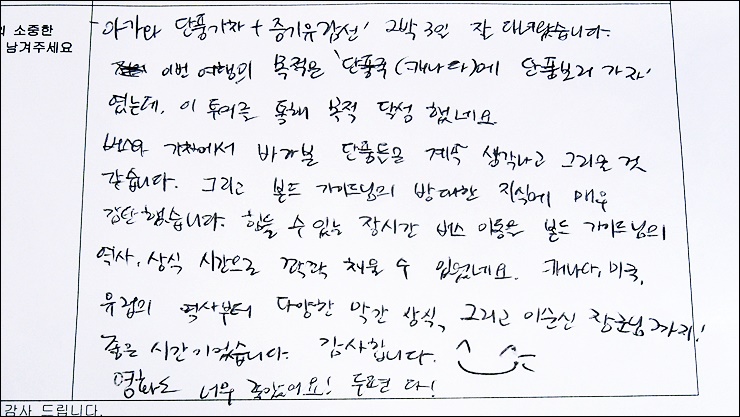 의 소중한
남겨주세요
아가와 단풍기차 + 증기유람선! 2박 3일 잘 다녀왔습니다.
이번 여행의 목적은 '단풍국(캐나다)에 단풍보러 가자'
였는데, 이 투어를 통해 목적 달성 했네요
버스와 기차에서 바라볼 단풍들은 계속 생각나고 그리울 것
같습니다. 그리고 볼드 가이드님의 방대한 지식에 매우
감탄했습니다. 힘들 수 있는 장시간 버스 이동은 볼드 가이드님의
역사, 상식 시간으로 꽉꽉 채울 수 있었네요. 캐나다, 미국,
유럽의 역사부터 다양한 약간 상식, 그리고 이순신 장군님까지!
좋은 시간이었습니다. 감사합니다.
영화도 너무 좋았어요! 두편 다!
감사 드립니다.